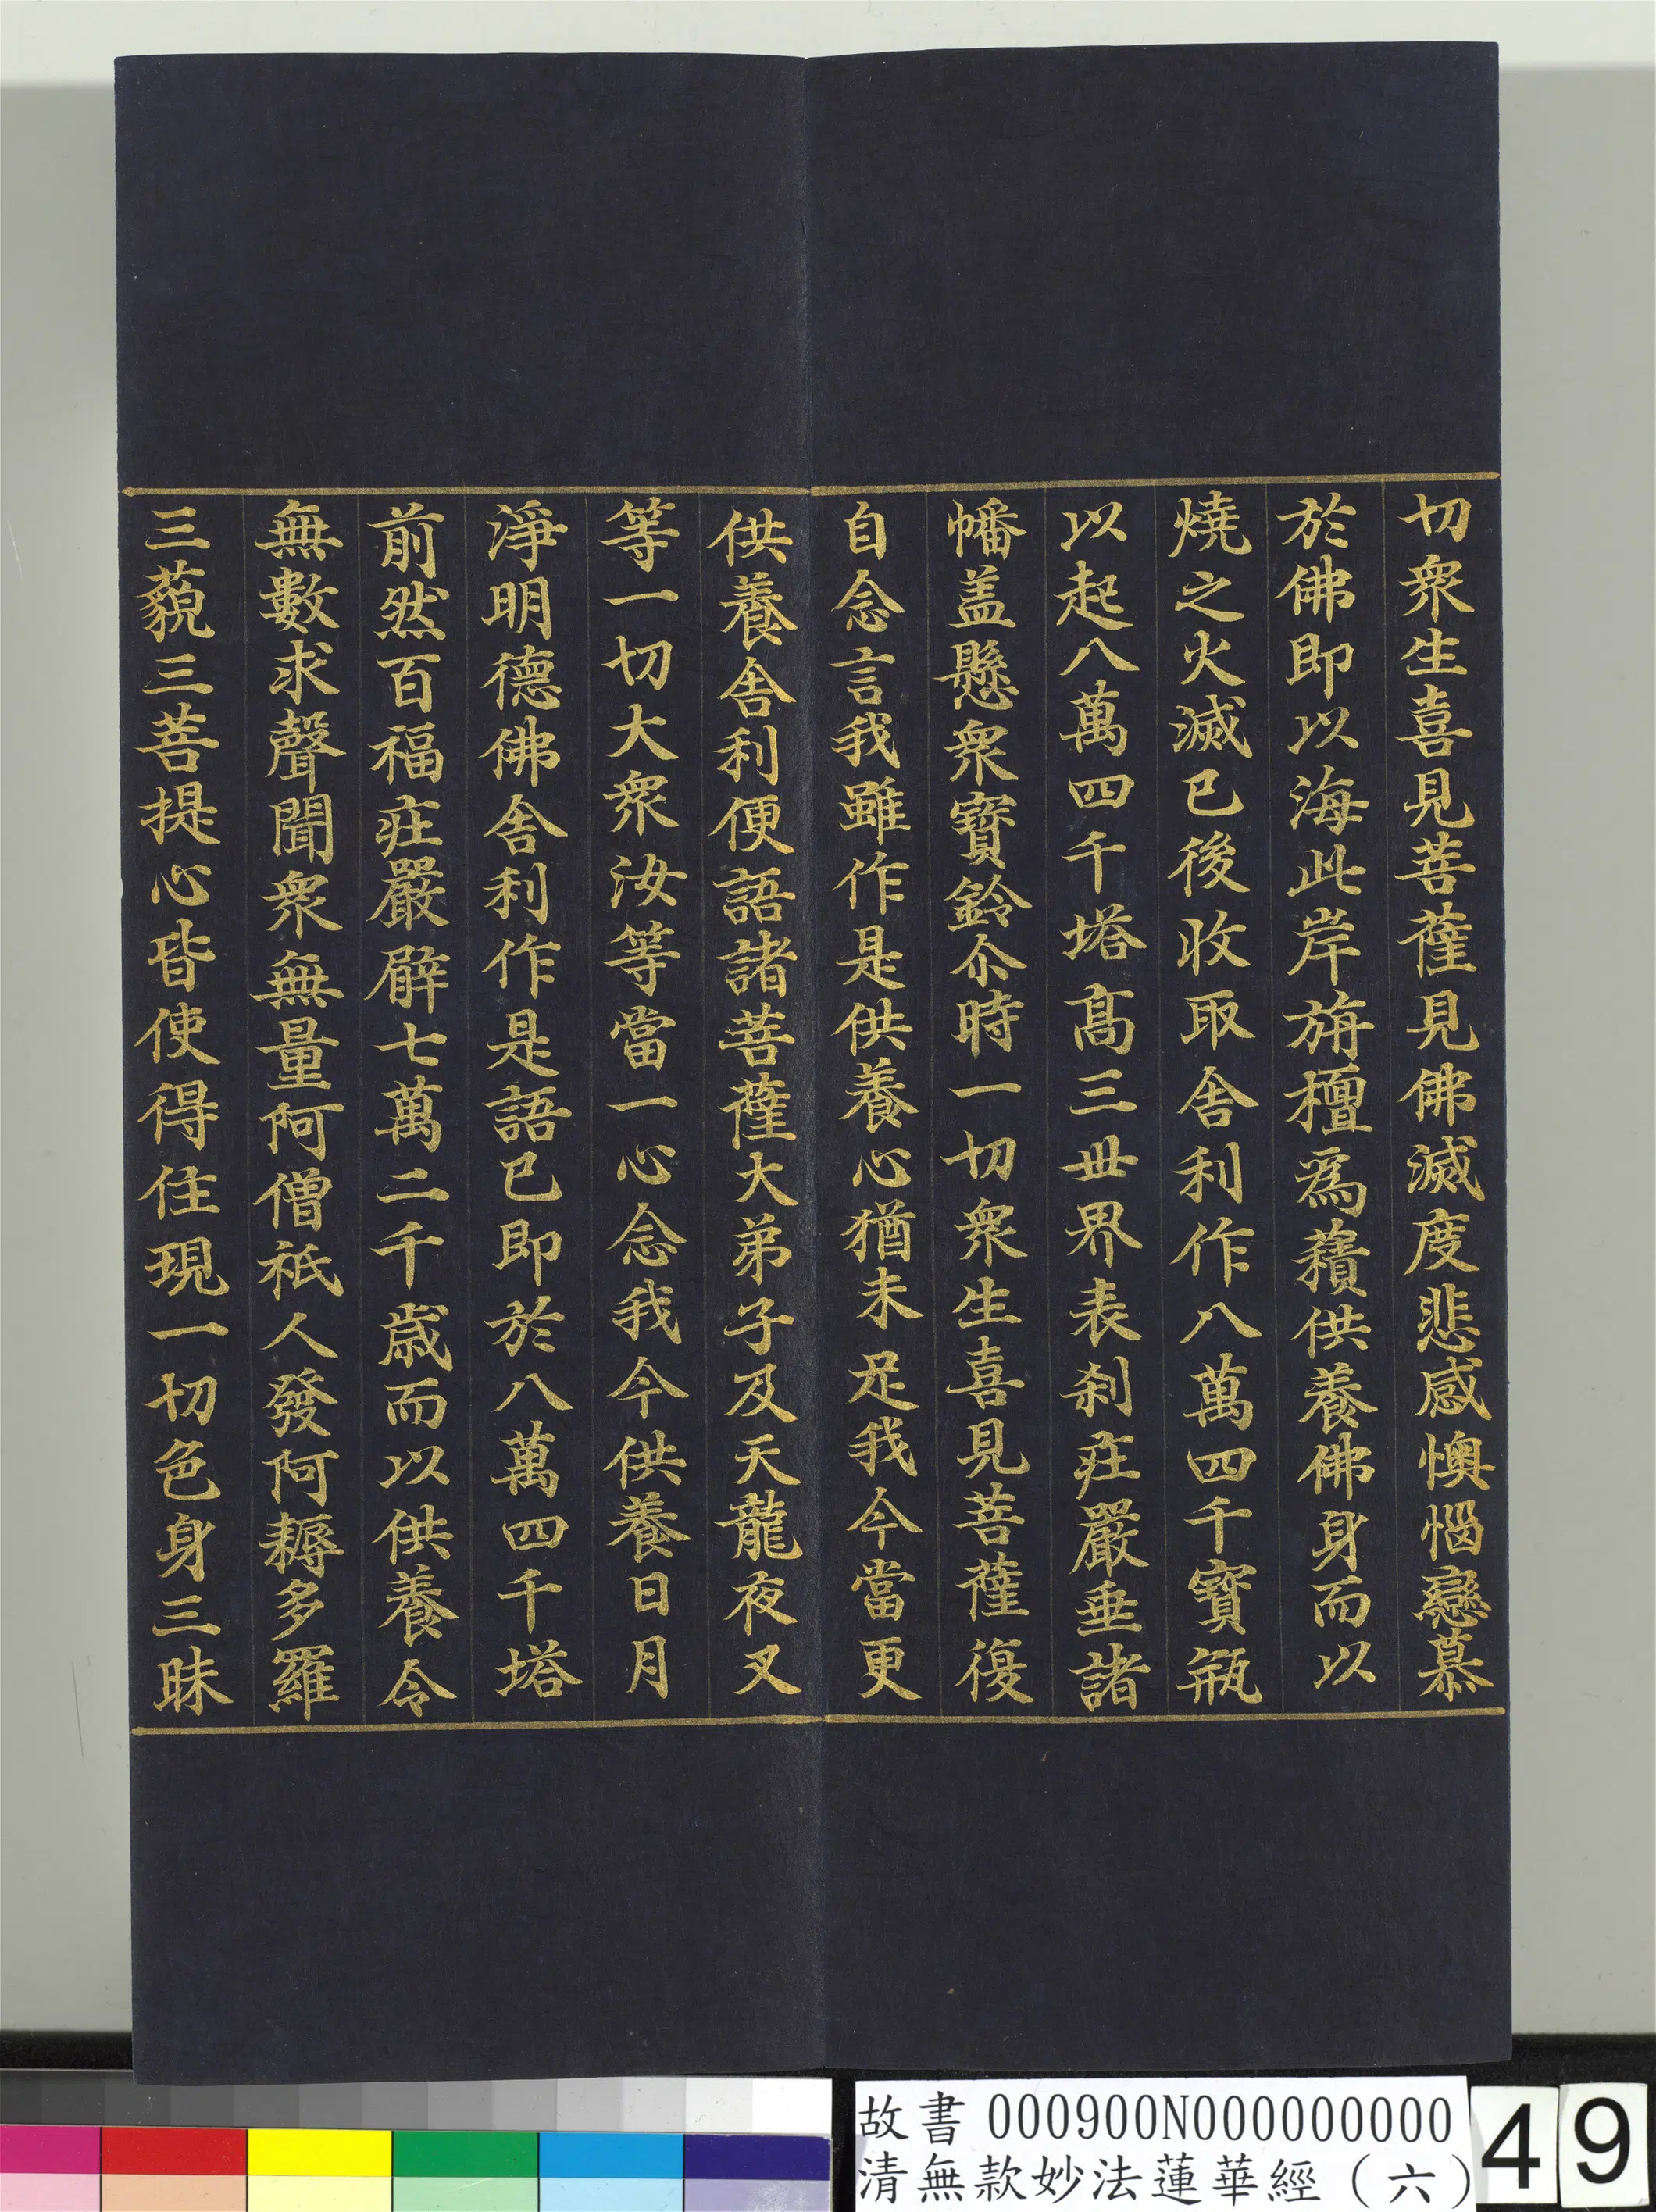 切衆生喜見菩薩見佛滅度悲感懊惱戀慕
於佛即以海此岸旃檀爲𧂐供養佛身而以
燒之火滅已後收取舍利作八萬四千寶瓶
以起八萬四千塔髙三世界表刹莊嚴垂諸
幡盖懸衆寶鈴尒時一切衆生喜見菩薩復
自念言我雖作是供養心猶未足我今當更
供養舍利便語諸菩薩大弟子及天龍夜叉
等一切大衆汝等當一心念我今供養日月
淨明德佛舍利作是語已即於八萬四千塔
前然百福莊嚴臂七萬二千歲而以供養令
無數求聲聞衆無量阿僧祇人發阿耨多羅
三藐三菩提心皆使得住現一切色身三昧
故書 000900N000000000
清無款妙法蓮華經（六）
49